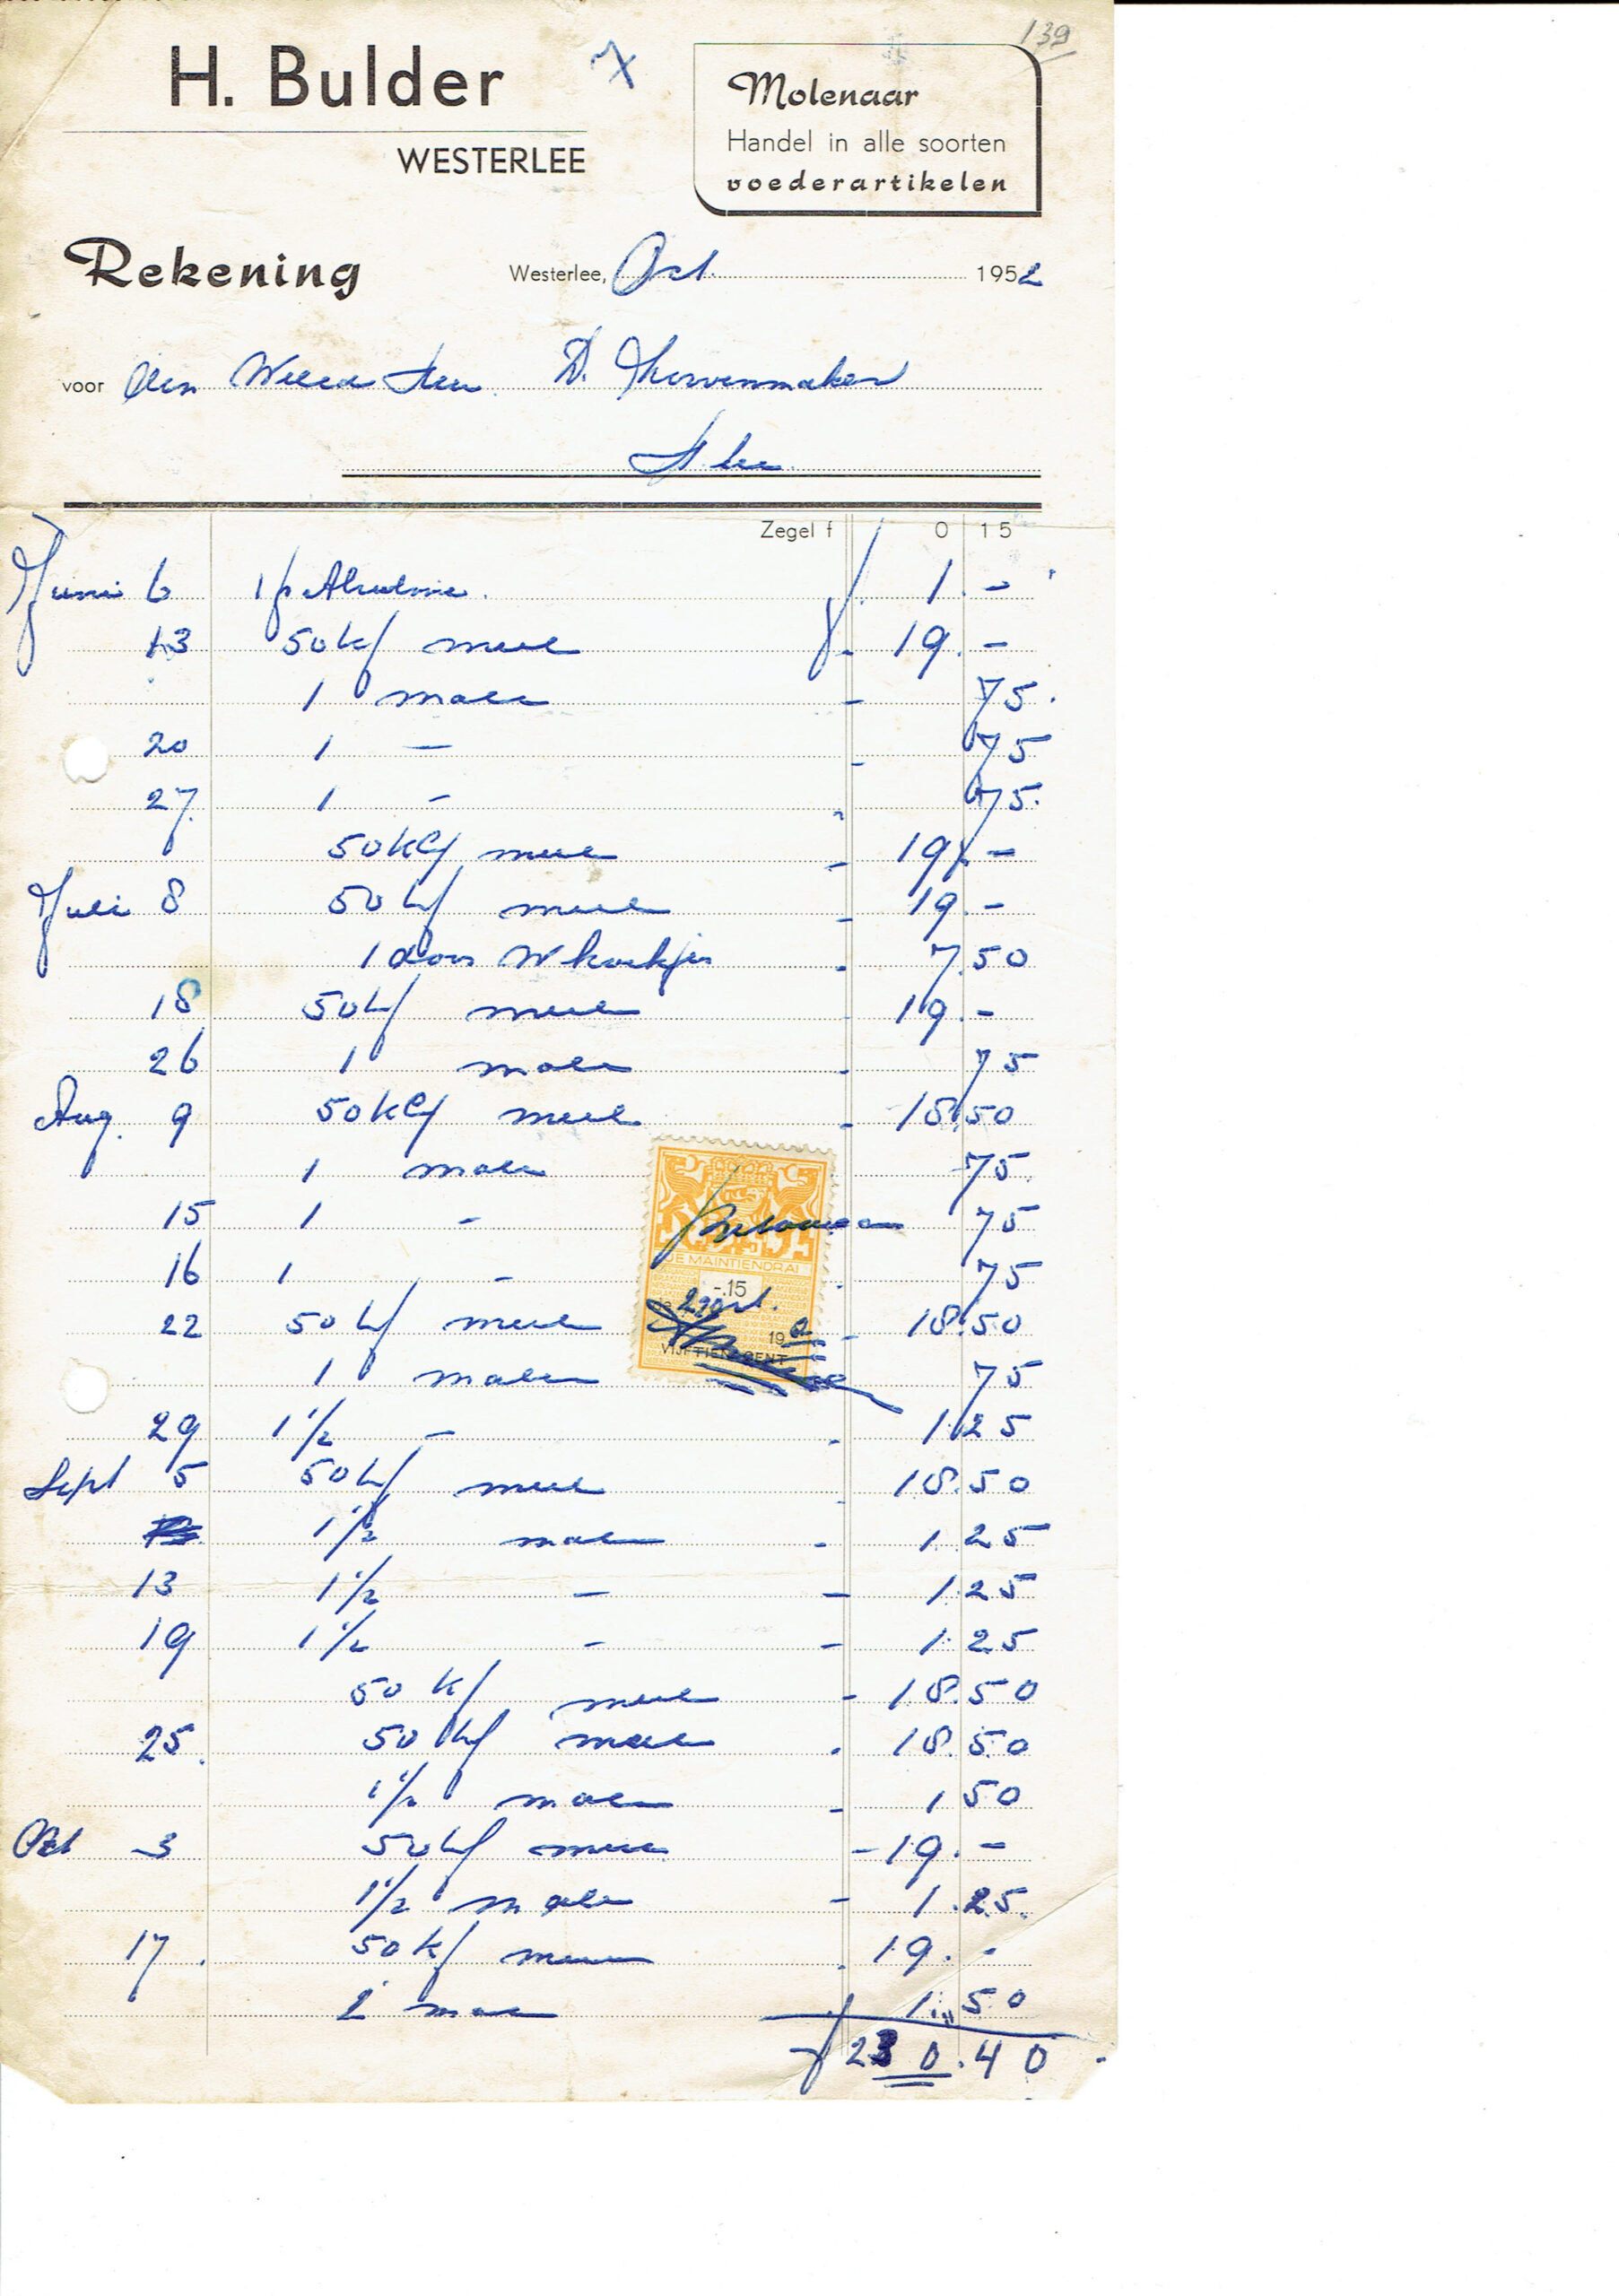 139
H. Bulder
WESTERLEE
Molenaar
Handel in alle soorten
voederartikelen
Rekening Westerlee, Oct. 1952
voor den Weled Heer. D.
Zegel f 0 15
Juni 6 1 f 1.-
13 50 kg meel f. 19.-
1 male - 75.
20 1 - - 75
27. 1 - - 75.
50 kg meel - 19.-
Juli 8 50 kg meel - 19.-
1 doos W koekjes - 7.50
18 50 kg meel - 19.-
26 1 malen - 75
Aug. 9 50 kg meel - 18.50
1 malen 75
15 1 - 75
16 1 - 75
JE MAINTIENDRAI
-.15
22 Oct.
19 52
VIJFTIEN CENT
22 50 kg meel - 18.50
1 malen 75
29 1 1/2 - - 1.25
Sept 5 50 kg meel - 18.50
1 1/2 malen - 1.25
13 1 1/2 - - 1.25
19 1 1/2 - - 1.25
50 kg meel - 18.50
25. 50 kg meel - 18.50
1 1/2 malen - 1 50
Oct 3 50 kg meel - 19.-
1 1/2 malen - 1.25.
17. 50 kg meel - 19.-
2 male 1.50
f 230.40